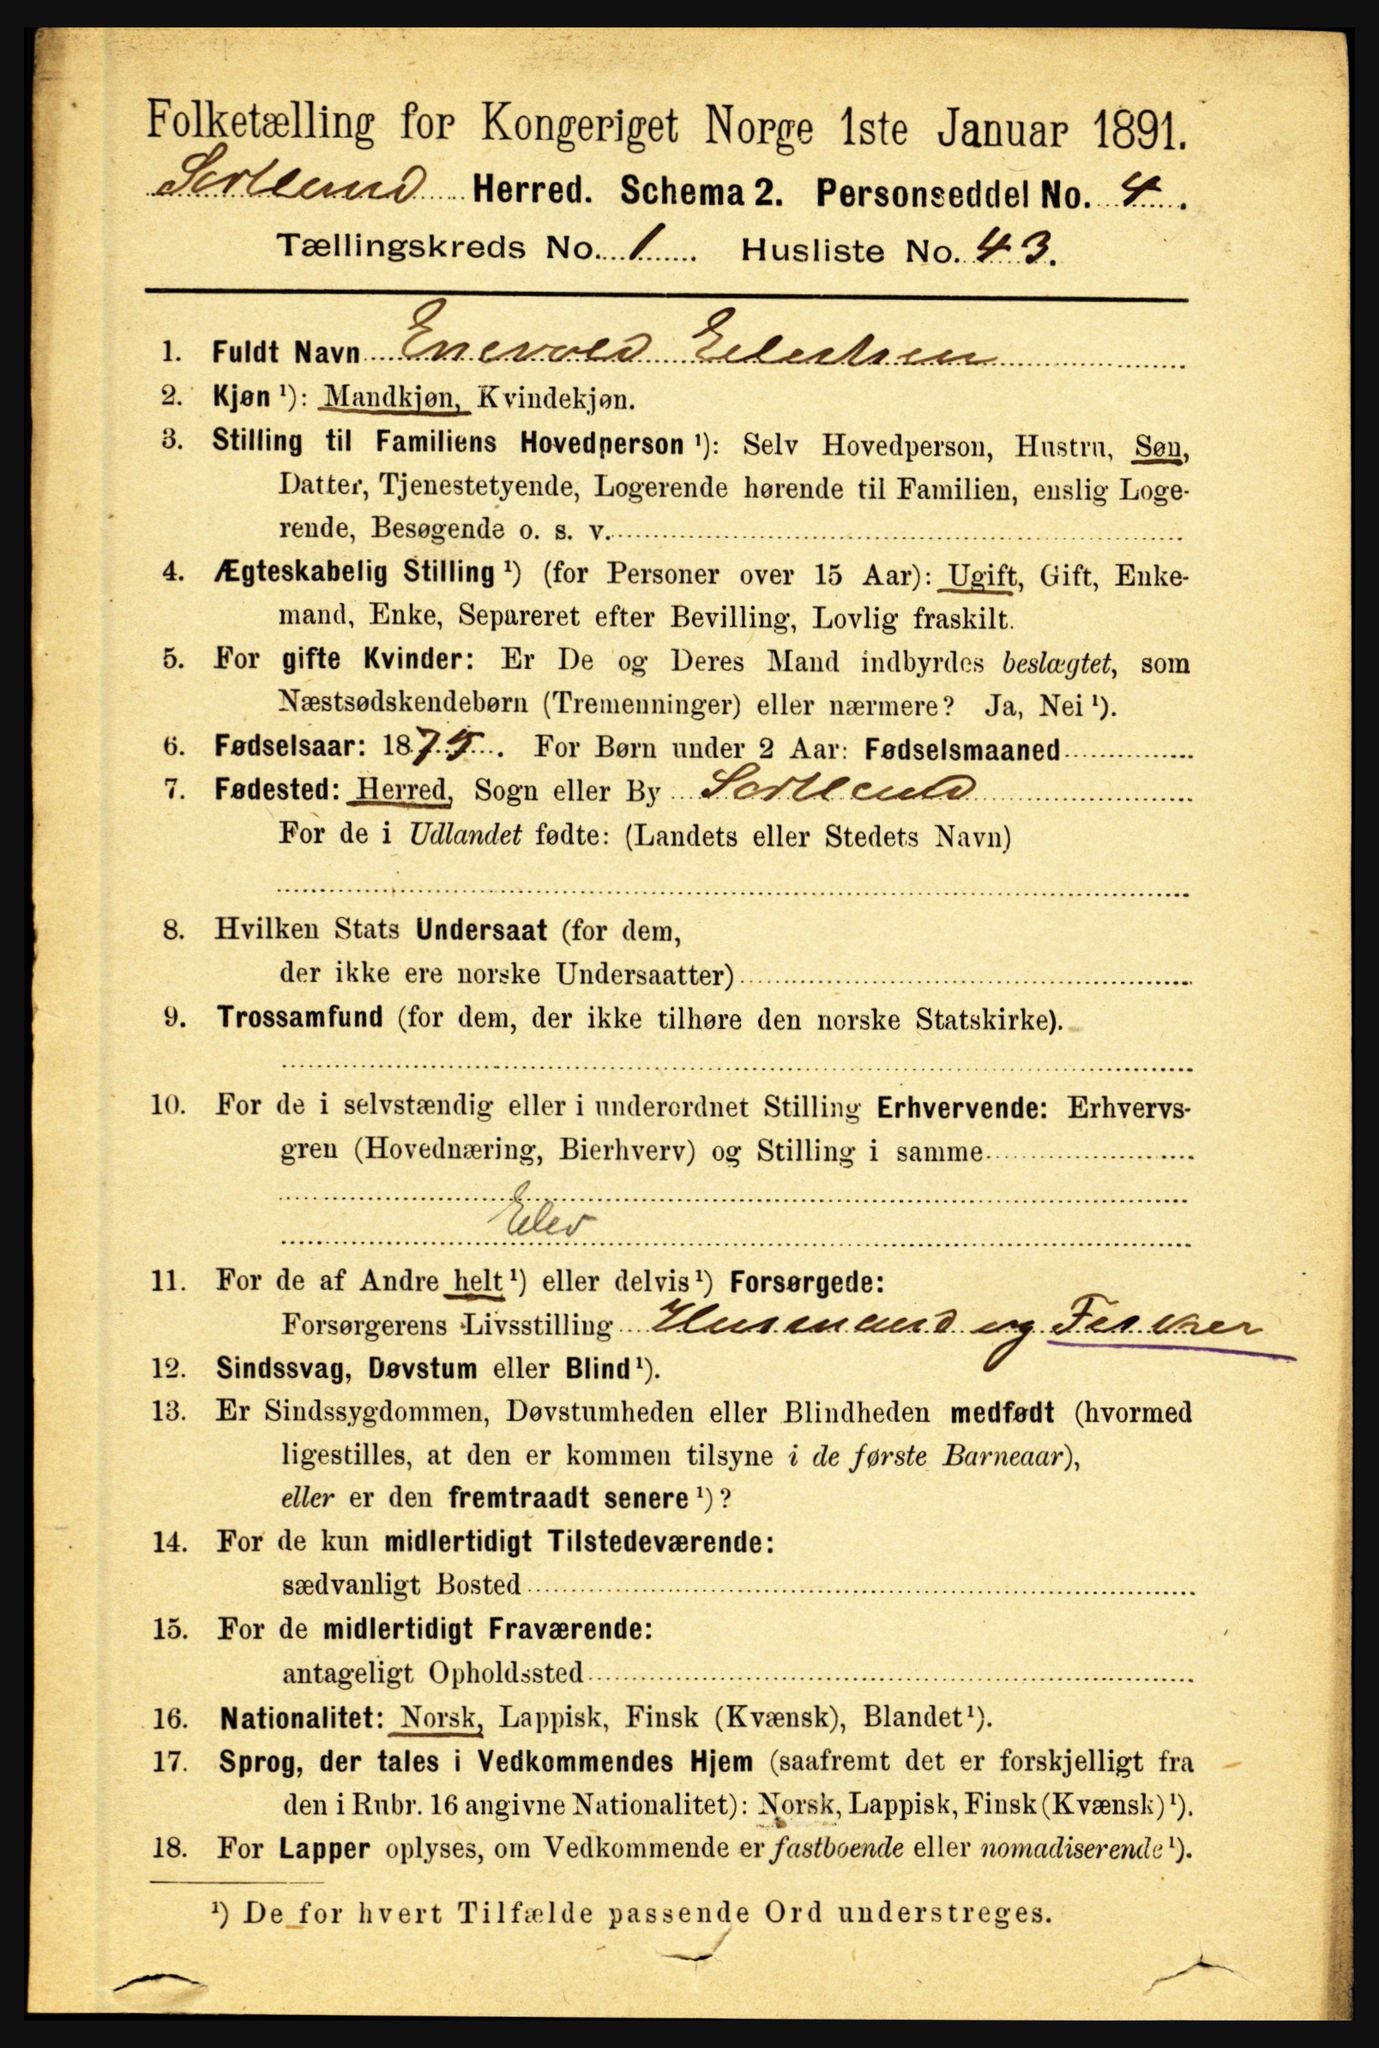 Folketælling for Kongeriget Norge 1ste Januar 1891.
Sortland Herred. Schema 2. Personseddel No. 4.
Tællingskreds No. 1 Husliste No. 43.
1. Fuldt Navn Enevold Eilertsen
2. Kjøn ¹): Mandkjøn, Kvindekjøn.
3. Stilling til Familiens Hovedperson ¹): Selv Hovedperson, Hustru, Søn,
Datter, Tjenestetyende, Logerende hørende til Familien, enslig Loge-
rende, Besøgende o. s. v.
4. Ægteskabelig Stilling ¹) (for Personer over 15 Aar): Ugift, Gift, Enke-
mand, Enke, Separeret efter Bevilling, Lovlig fraskilt.
5. For gifte Kvinder: Er De og Deres Mand indbyrdes beslægtet, som
Næstsødskendebørn (Tremenninger) eller nærmere? Ja, Nei ¹).
6. Fødselsaar: 1875. For Børn under 2 Aar: Fødselsmaaned
7. Fødested: Herred, Sogn eller By Sortland
For de i Udlandet fødte: (Landets eller Stedets Navn)
8. Hvilken Stats Undersaat (for dem,
der ikke ere norske Undersaatter)
9. Trossamfund (for dem, der ikke tilhøre den norske Statskirke).
10. For de i selvstændig eller i underordnet Stilling Erhvervende: Erhvervs-
gren (Hovednæring, Bierhverv) og Stilling i samme
Elev
11. For de af Andre helt ¹) eller delvis ¹) Forsørgede:
Forsørgerens Livsstilling Husmand og Fisker
12. Sindssvag, Døvstum eller Blind ¹).
13. Er Sindssygdommen, Døvstumheden eller Blindheden medfødt (hvormed
ligestilles, at den er kommen tilsyne i de første Barneaar),
eller er den fremtraadt senere ¹)?
14. For de kun midlertidigt Tilstedeværende:
sædvanligt Bosted
15. For de midlertidigt Fraværende:
antageligt Opholdssted
16. Nationalitet: Norsk, Lappisk, Finsk (Kvænsk), Blandet ¹).
17. Sprog, der tales i Vedkommendes Hjem (saafremt det er forskjelligt fra
den i Rubr. 16 angivne Nationalitet): Norsk, Lappisk, Finsk (Kvænsk) ¹).
18. For Lapper oplyses, om Vedkommende er fastboende eller nomadiserende ¹).
¹) De for hvert Tilfælde passende Ord understreges.